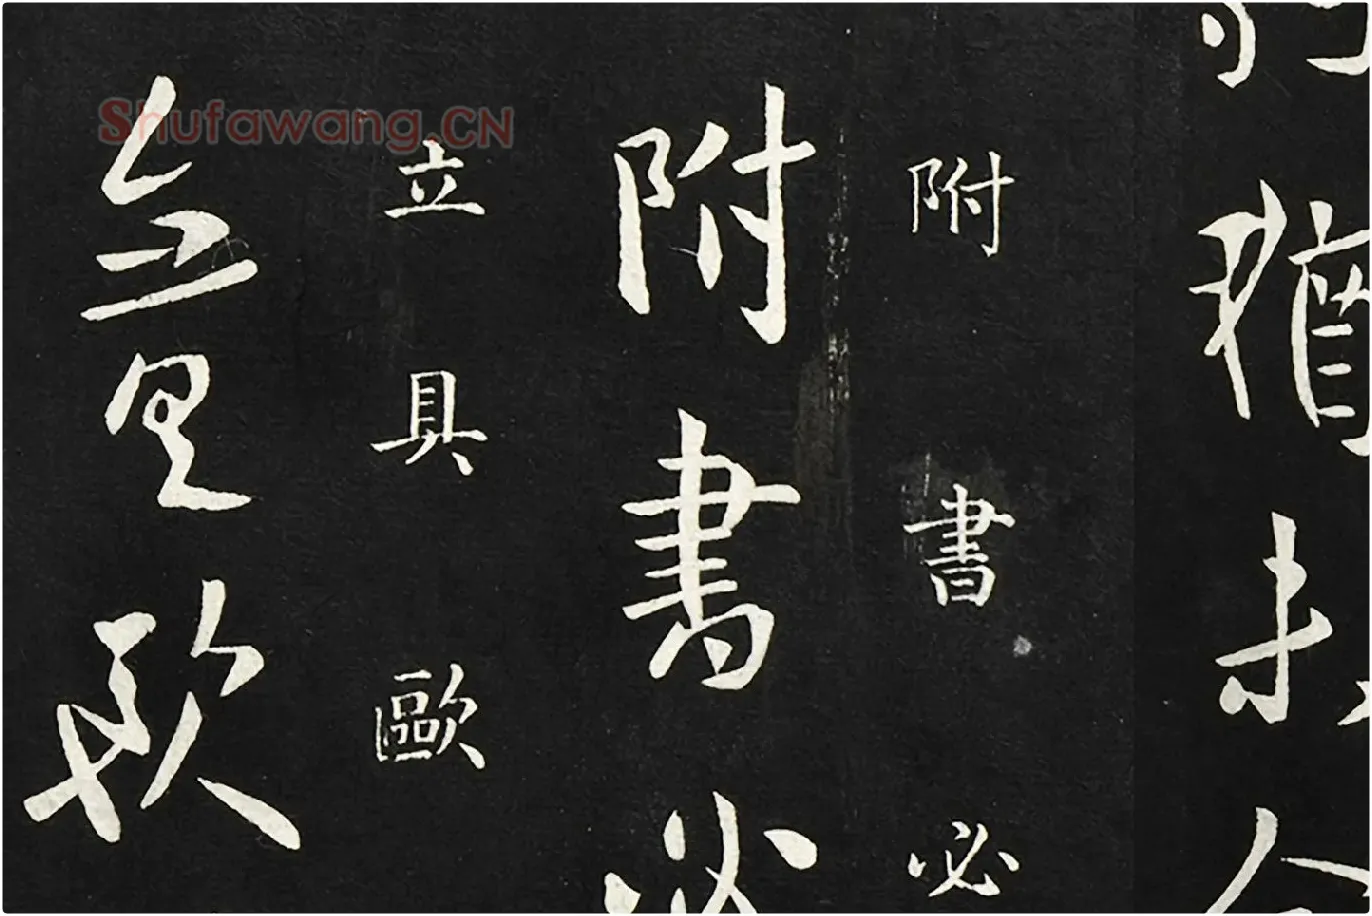 猶未
附書必
附書必
立具歐
立具歐
Shufawang.CN